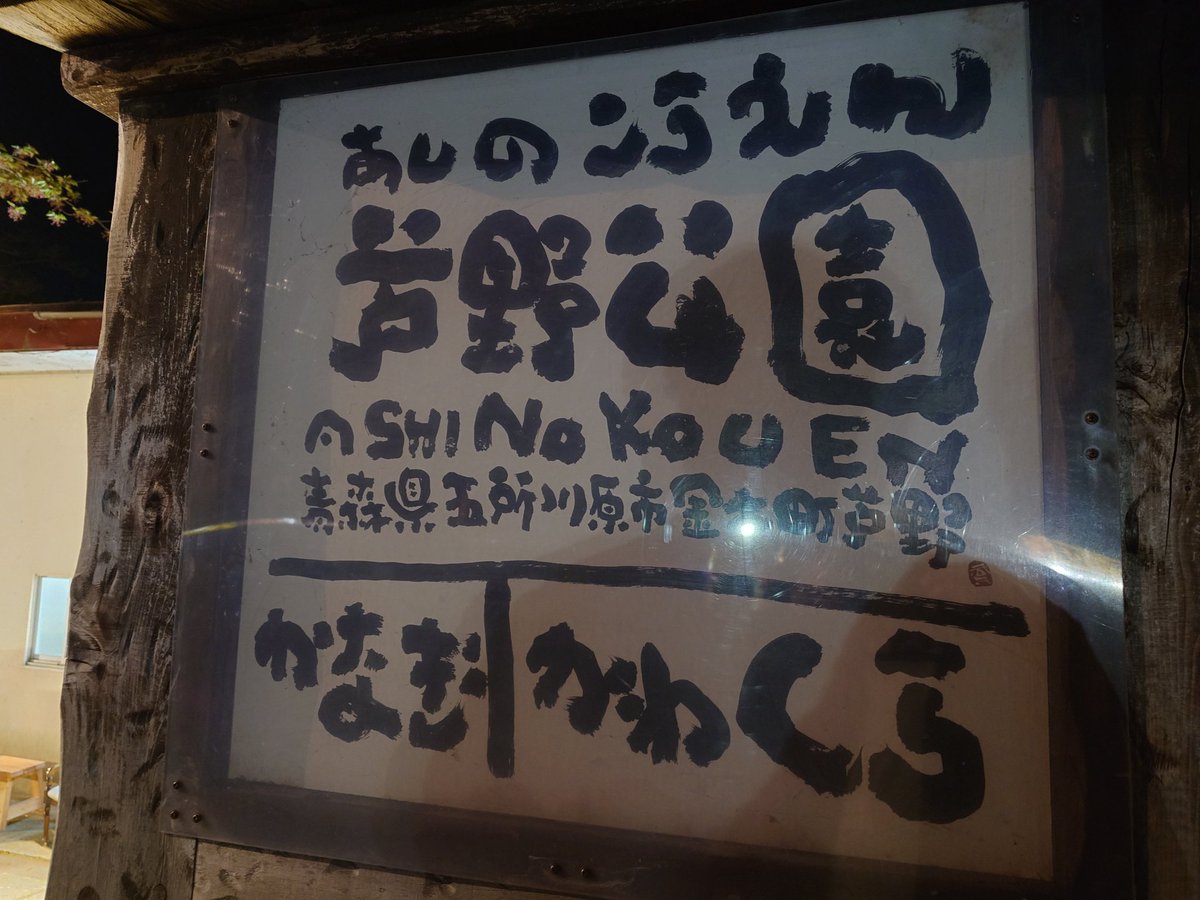 あしのこうえん
芦野公園
ASHINOKOUEN
青森県五所川原市金木町芦野
かなぎ
かわくら